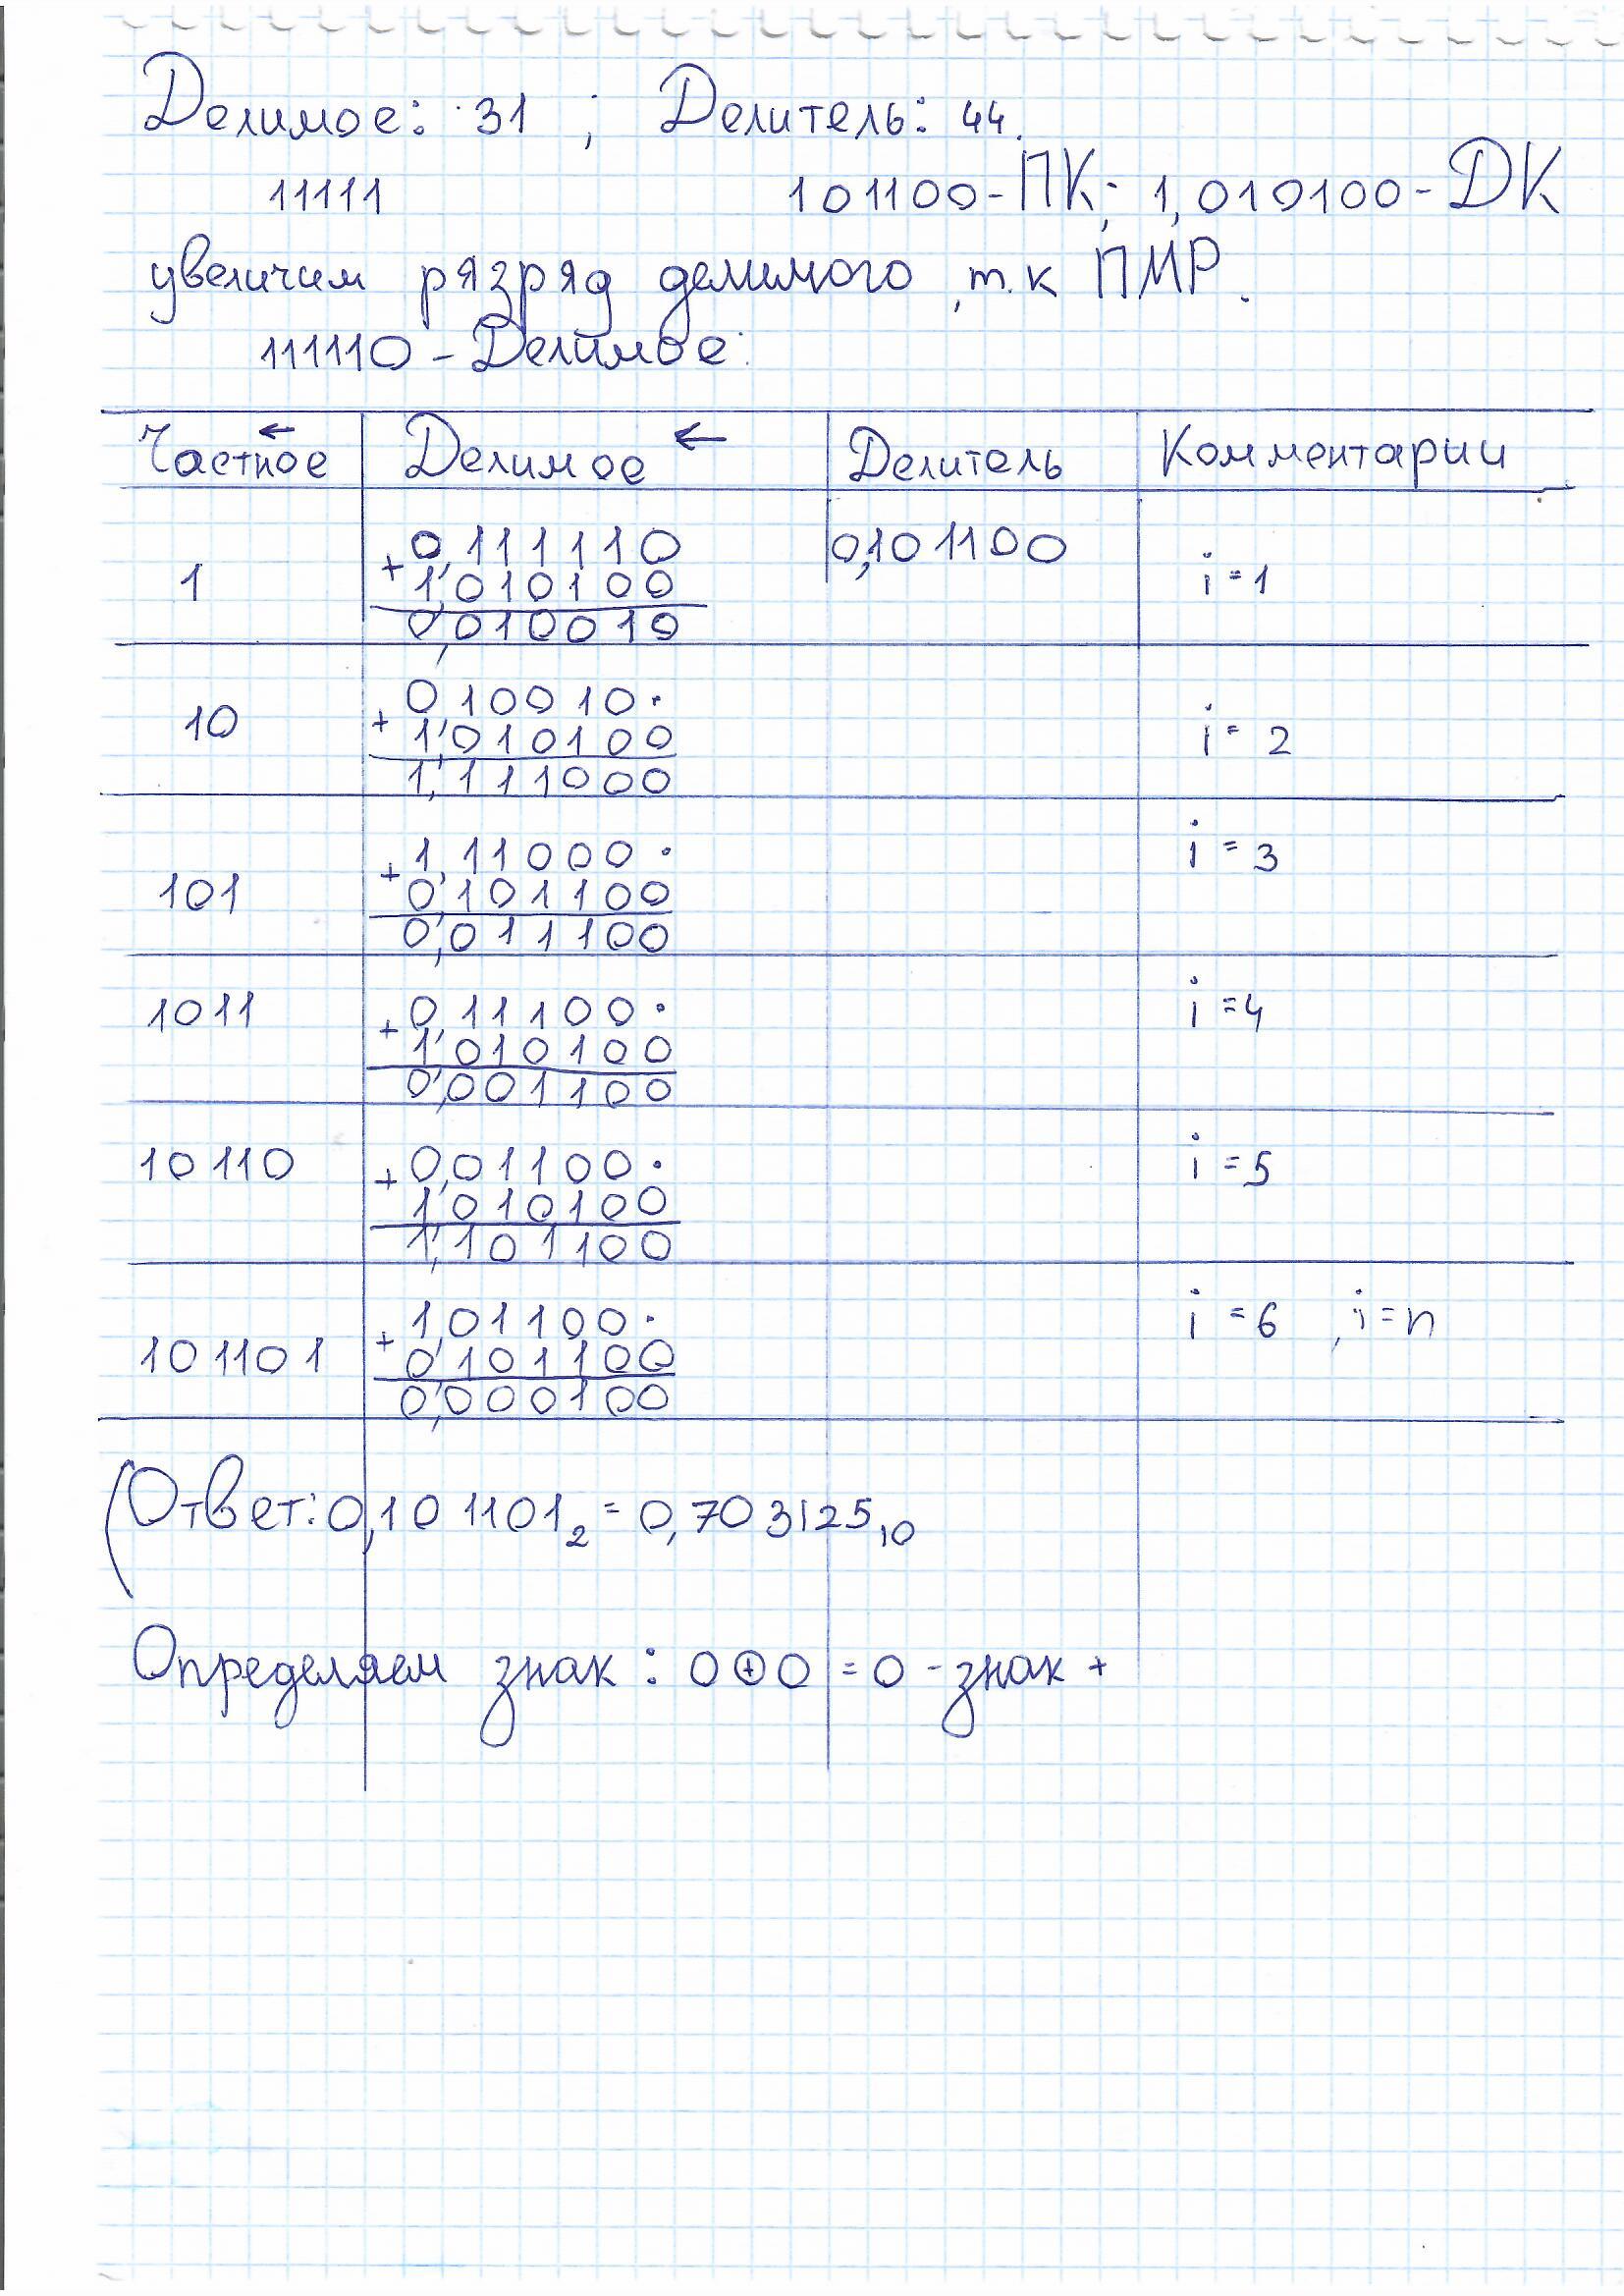 Делимое: 31 ; Делитель: 44.
11111 101100-ПК; 1,010100-ДК
увеличим рязряд делимого, т.к ПМР.
111110 - Делимое:
Частное ← Делимое ← Делитель Комментарии
0,111110 0,101100
1 + 1,010100 i=1
0,010010
010010.
10 + 1,010100 i=2
1,111000
1,11000. i=3
101 + 0,101100
0,011100
1011 0,11100. i=4
+ 1,010100
0,001100
10110 0,01100. i=5
+ 1,010100
1,101100
1,01100. i=6, i=n
101101 + 0,101100
0,000100
(Ответ: 0,101101₂ = 0,703125₁₀
Определяем знак: 0⊕0 = 0 - знак +